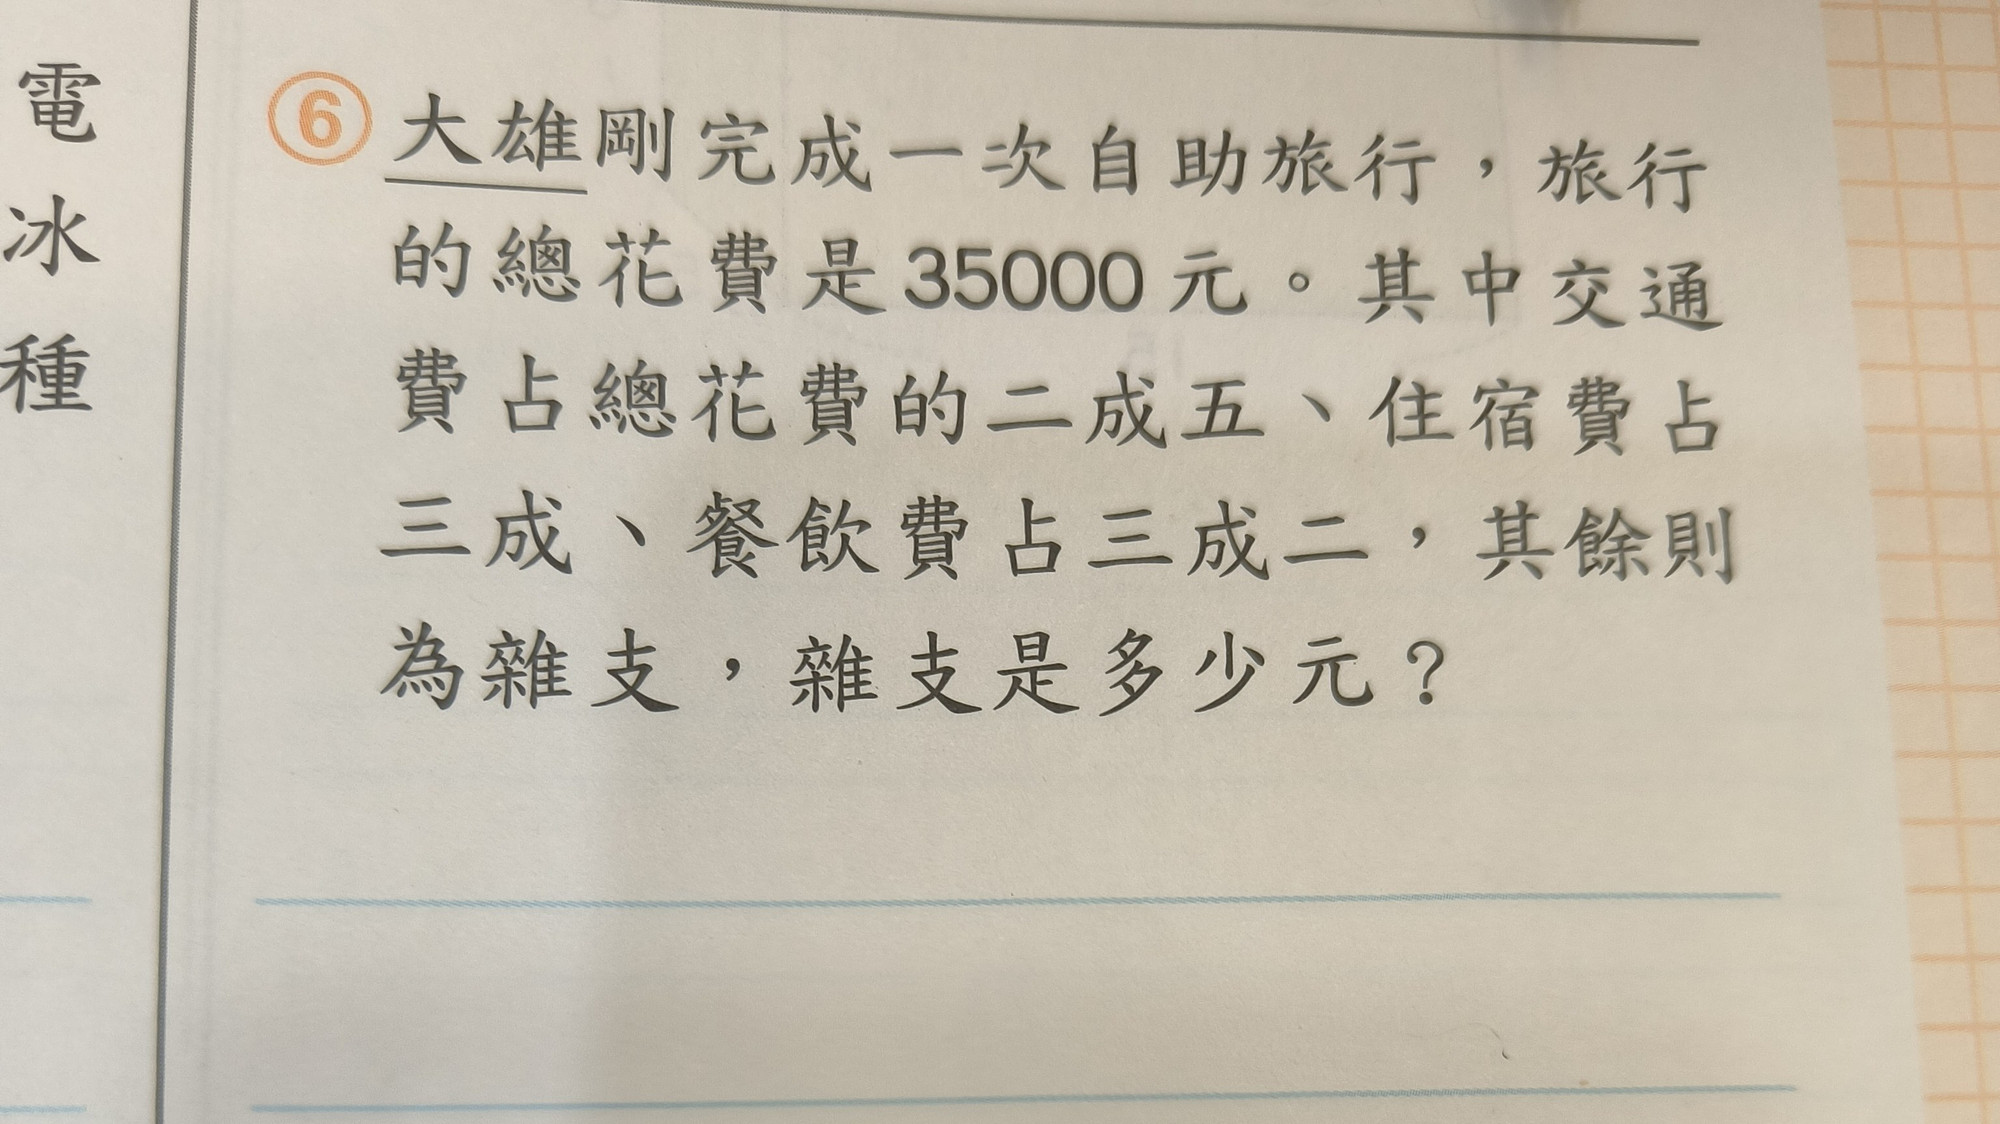 電
冰
種
6 大雄剛完成一次自助旅行，旅行
的總花費是35000元。其中交通
費占總花費的二成五、住宿費占
三成、餐飲費占三成二，其餘則
為雜支，雜支是多少元？